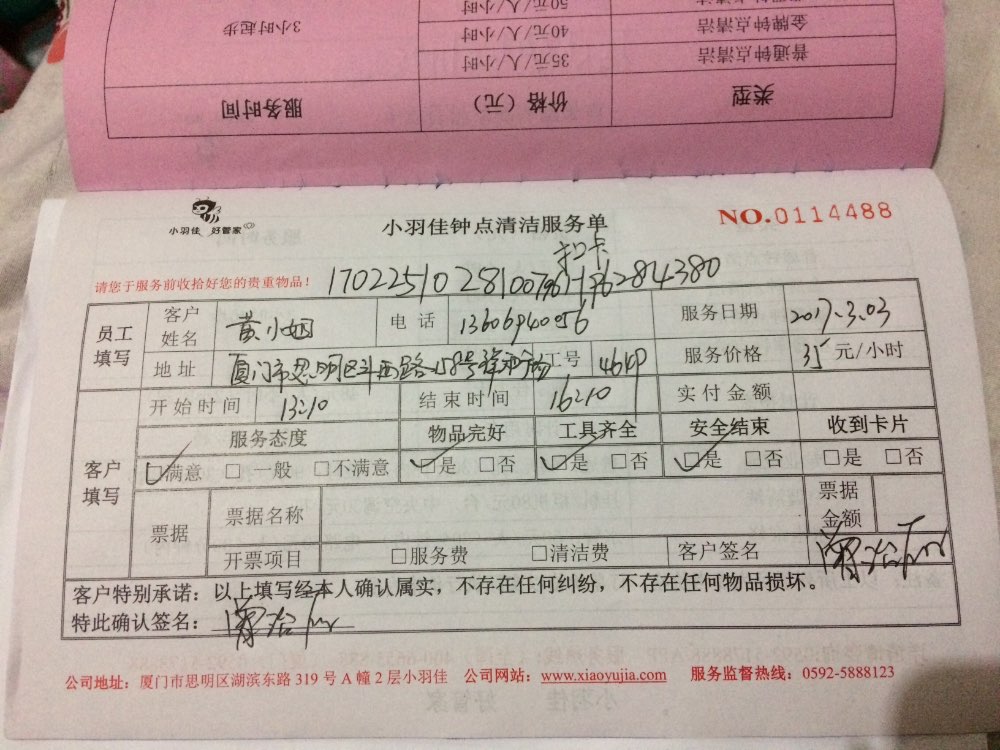 50元/人/小时
金牌钟点清洁 40元/人/小时 3小时起步
普通钟点清洁 35元/人/小时
类型 价格（元） 服务时间
小羽佳 好管家
小羽佳钟点清洁服务单
NO.0114488
扣卡
请您于服务前收拾好您的贵重物品！
员工填写 客户姓名 黄小姐 电话 13606940056 服务日期 2017.3.03
地址 厦门市思明区斗西路158号 工号 服务价格 35 元/小时
客户填写 开始时间 13:10 结束时间 16:10 实付金额
服务态度 物品完好 工具齐全 安全结束 收到卡片
☑满意 □一般 □不满意 ☑是 □否 ☑是 □否 ☑是 □否 □是 □否
票据 票据名称 票据金额
开票项目 □服务费 □清洁费 客户签名
客户特别承诺：以上填写经本人确认属实，不存在任何纠纷，不存在任何物品损坏。
特此确认签名：
公司地址：厦门市思明区湖滨东路 319 号 A 幢 2 层小羽佳 公司网站：www.xiaoyujia.com 服务监督热线：0592-5888123